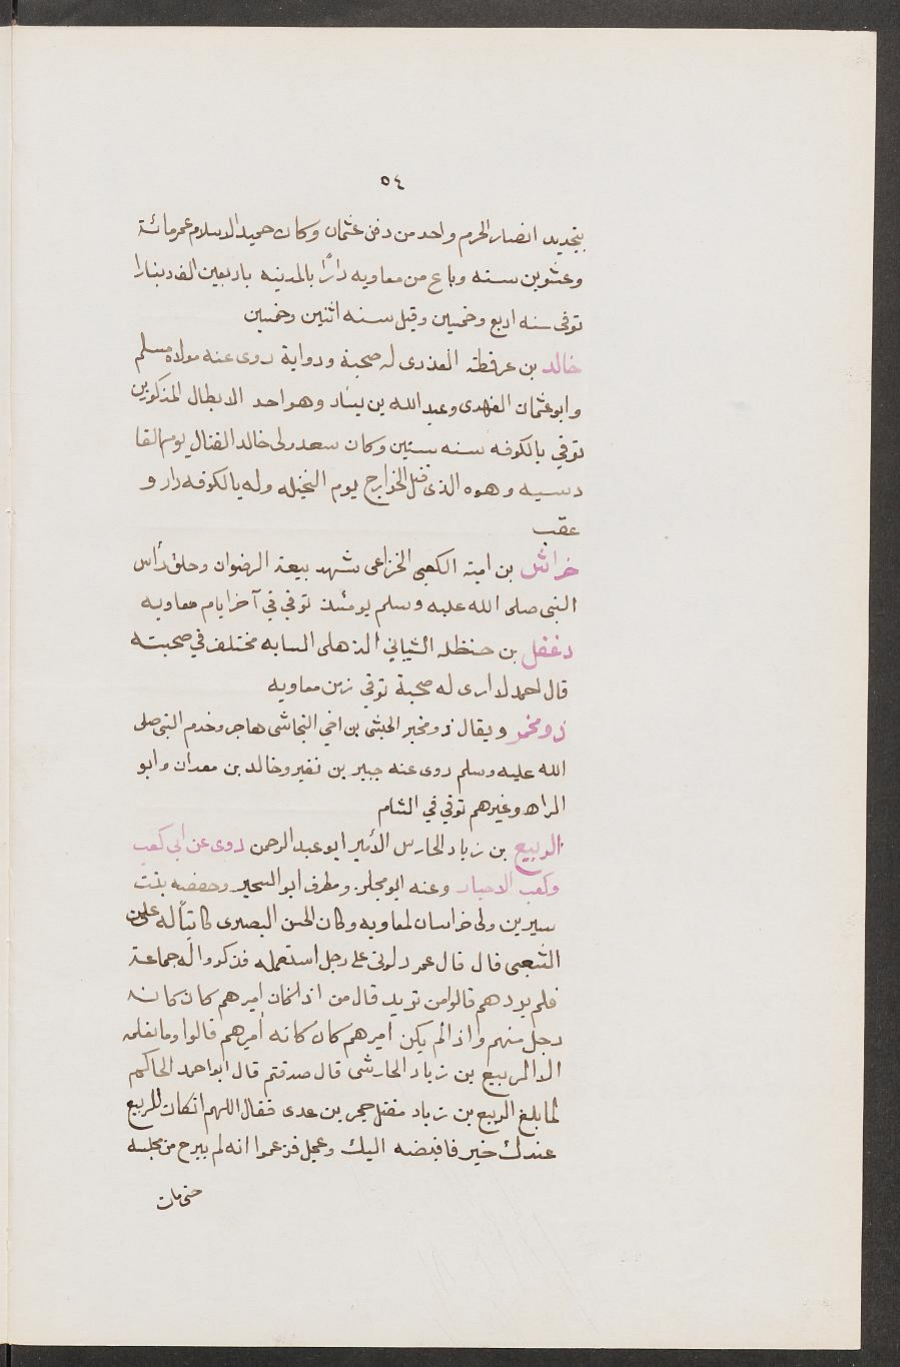 ٥٤
بتجديد انصار الحرم واحد من دفن عثمان وكان حميد الاسلام عمر مائة
وعشرين سنه وباع من معاويه دارًا بالمدينه باربعين الف دينارا
توفى سنه اربع وخمسين وقيل سنه اثنين وخمسين
خالد بن عرفطة العذرى له صحبة ورواية روى عنه مولاه مسلم
وابو عثمان النهدى وعبد الله بن يسار وهو احد الابطال المذكورين
توفي بالكوفه سنه ستين وكان سعد ولى خالد القتال يوم القا
دسيه وهوه الذى قتل الخوارج يوم النخيله وله بالكوفه دار و
عقب
خراش بن امية الكعبى الخزاعى شهد بيعة الرضوان وحلق رأس
النبى صلى الله عليه وسلم يومئذ توفي في آخر ايام معاويه
دغفل بن حنظله الشيباني الذهلى النسابه مختلف في صحبته
قال احمد لا ارى له صحبة توفي زمن معاويه
ذو مخمر ويقال ذو مخبر الحبشى بن اخي النجاشى هاجر وخدم النبى صلى
الله عليه وسلم روى عنه جبير بن نفير وخالد بن معدان وابو
الزاهـ وغيرهم توفي في الشام
الربيع بن زياد الحارس الأمير ابو عبد الرحمن روى عن ابي كعب
وكعب الاحبار وعنه ابو مجلز ومطرف ابو السحير وحفصه بنت
سيرين ولى خراسان لمعاويه وكان الحسن البصرى كاتبًا له على
الشعبى قال قال عمر دلونى على رجل استعمله فذكروا له جماعة
فلم يردهم قالوا من تريد قال من اذا كان اميرهم كان كانه
رجل منهم واذا لم يكن اميرهم كان كانه أميرهم قالوا وما نعلمه
الا الربيع بن زياد الحارشى قال صدقتم قال ابو احمد الحاكم
لما بلغ الربيع بن زياد مقتل حجر بن عدى فقال اللهم ان كان للربيع
عندك خير فاقبضه اليك وعجل فزعموا انه لم يبرح من مجلسه
حتى مات